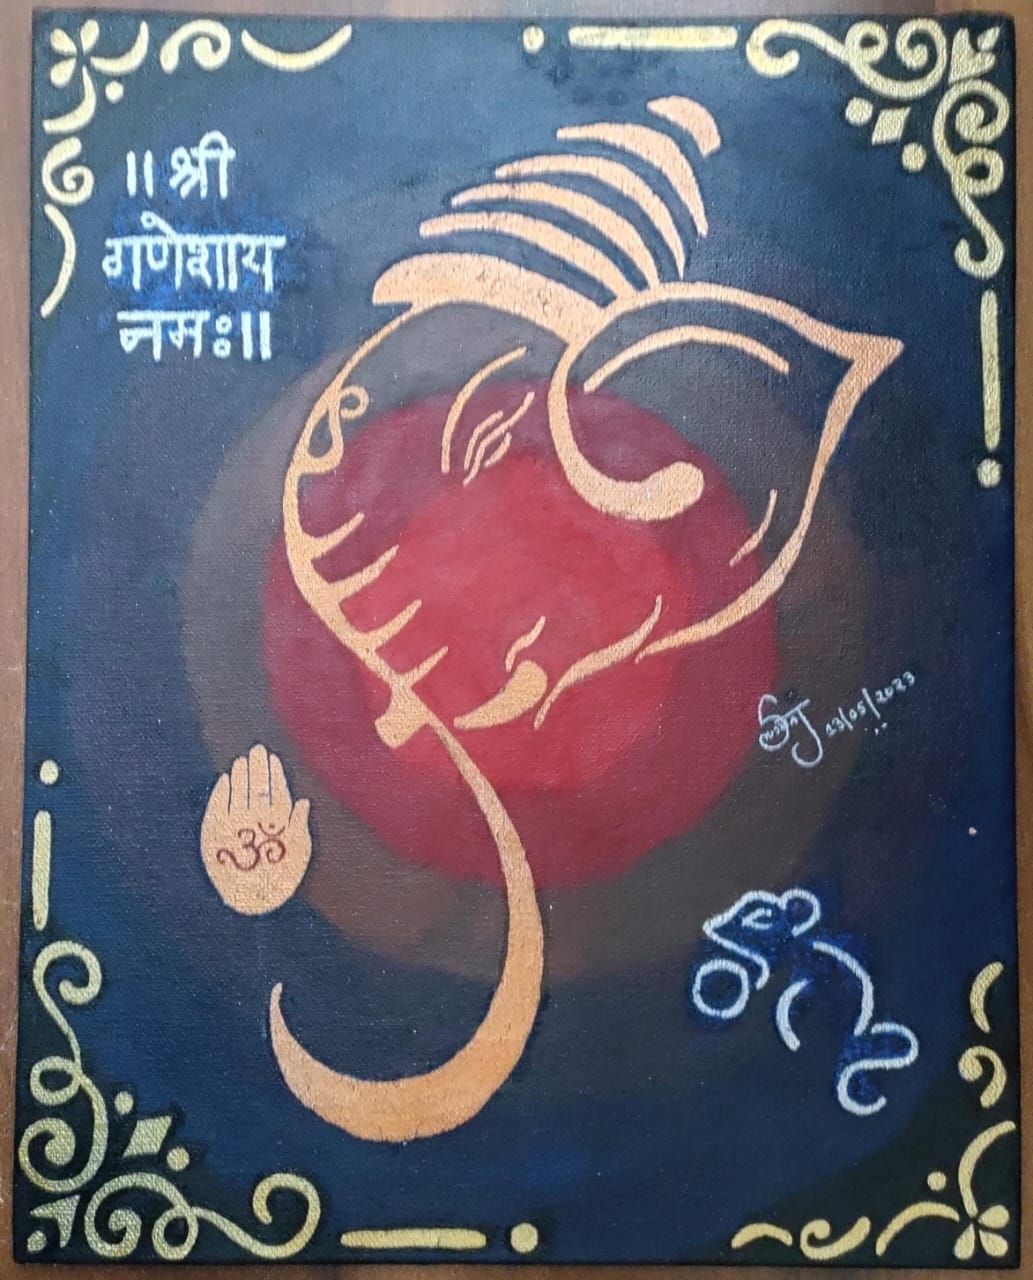 ॥ श्री
गणेशाय
नमः॥
ॐ
13/05/2023